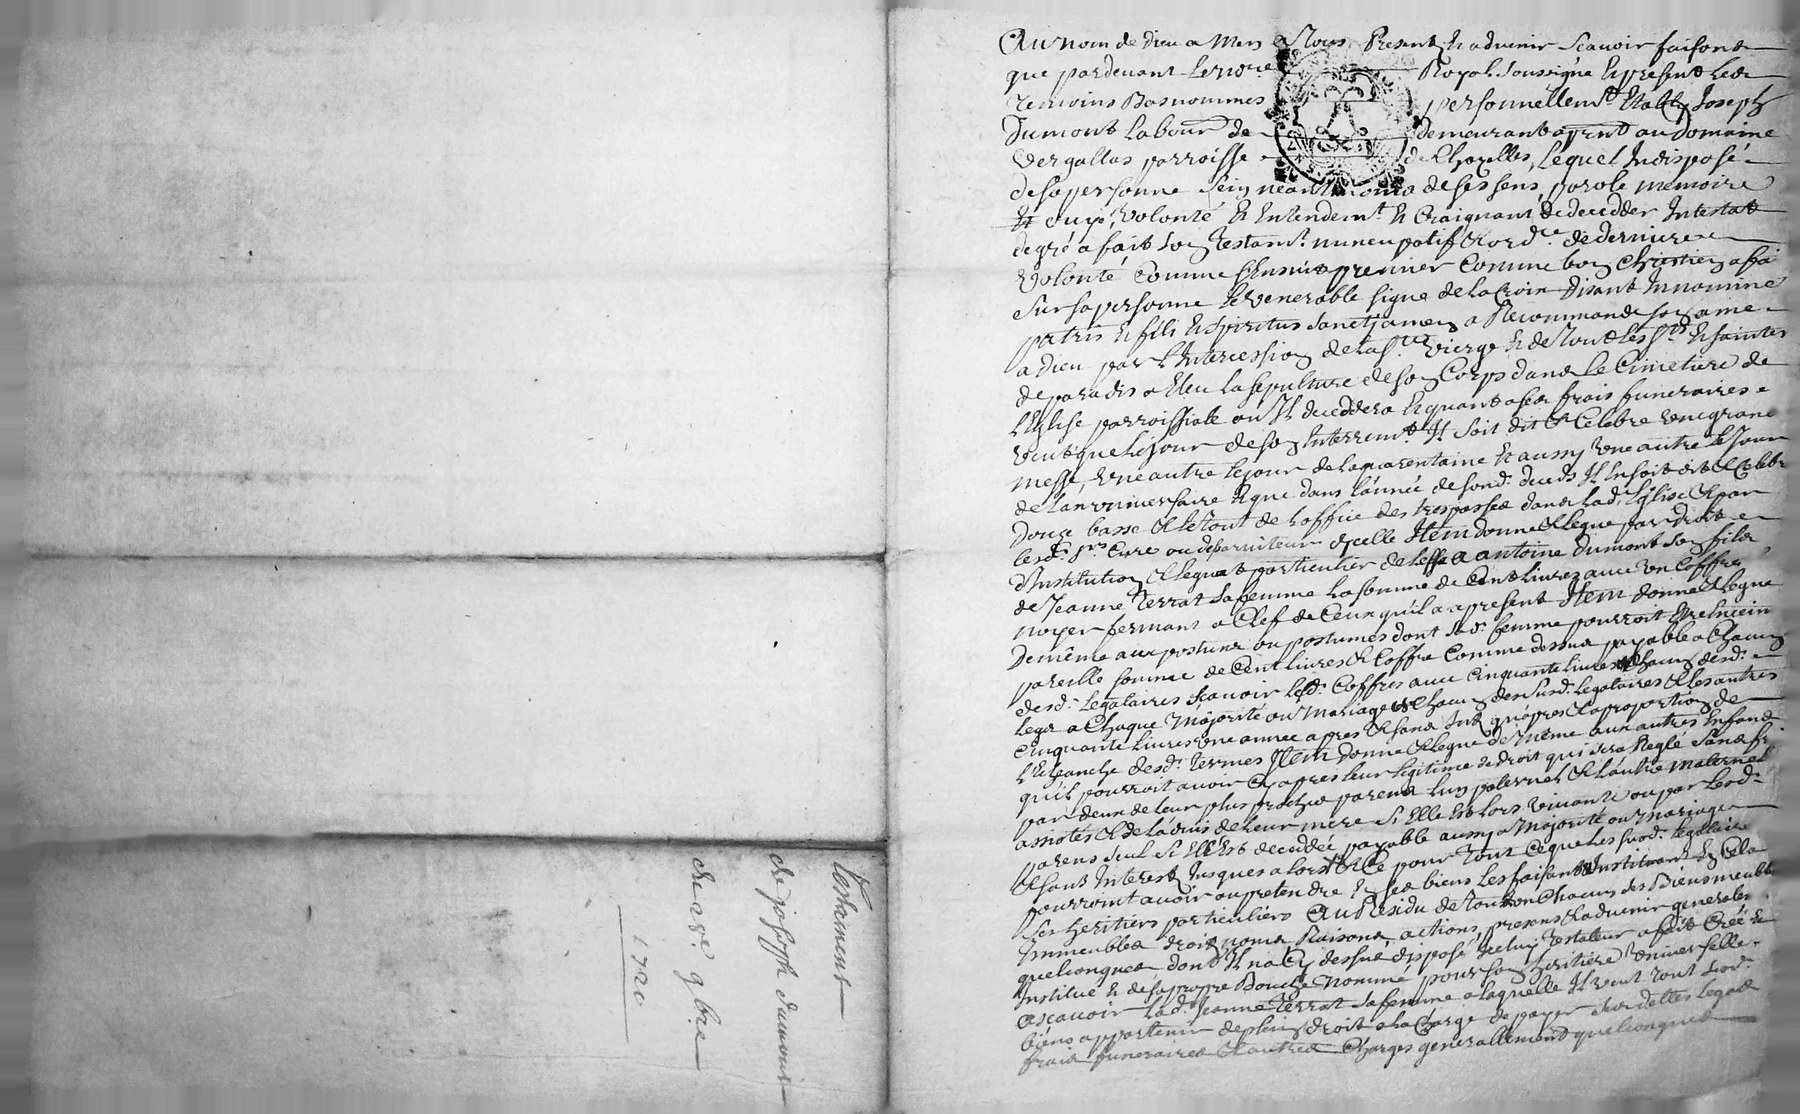 Testament
de joseph dumont
du 2e 9bre
1720
Au nom de dieu a Mers a Tous Presents et advenir Scavoir faisons
que pardevant Le nore Royal Soussigné et presents Les
temoins Basnommes personnellemt Estably Joseph
Dumont Labour de demeurant a prnt au Domaine
Vergallas parroisse de Chazelles, Lequel Indisposé
de sa personne sein neantmoins de ses sens, parole memoire
et volonté et Entendemt et Craignant de decedder Intestat
degré a fait son Testamt nuncupatif et ordce de derniere
Volonté Comme s'Ensuit premier Comme bon Chrestien a fai
Sur sa personne le venerable signe de la Croix disant In nomine
patris et filii et spiritus sancti amen a Recommandé son ame
a dieu par l'Intercession de la ste vierge et de Tout les sts et saintes
de paradis a Eleu la sepulture de son Corps dans Le Cimetiere de
l'Eglise parroissiale ou Il deceddera et quant a ses frais funeraires
veut que le jour de son Interremt Il soit dit et Celebré une grane
messe, une autre le jour de la quarentaine et aussy une autre le Jour
de l'anniversaire et que dans l'année de sond. deceds Il en soit dit et Celebré
Douze basse et le Tout de l'office des trespassés dans lad. Eglise et par
lesd. srs Curé ou desserviteur d'icelle Item donne et legue par droit
d'Institution et legat particulier delessé a antoine dumont son fils
de Jeanne Terrat sa femme la somme de Cent livres avec un Coffre
noyer fermant a Clef de Ceux qu'il a a present Item donne et legue
De même aux postume ou postumes dont sad. femme pourroit Estre Encein
pareille somme de Cent livres et Coffre Comme dessus payable a Chacun
desd. Legataires scavoir lesd. Coffres avec Cinquante livres a Chacun desd.
legs a Chaque Majorité ou Mariage de Chacun des susd. legataires et les autres
Cinquante livres une année apres et sans Int. qu'apres et a proportion de
l'Echeance desd. termes Item donne et legue de même aux autres Enfans
qu'il pourroit avoir Cy apres leur legitime de droit qui sera Reglé sans
par deux de leur plus proches parens l'un paternel et l'autre maternel
assistés et de l'advis de leur mere si Elle Est lors vivante ou par lesd.
parens seul si Elle Est deceddée payable aussy a Majorité ou mariage
et sans Interest Jusques a lors et Ce pour Tout Ce que les susd. legataire
pourroint avoir ou pretendre En ses biens les faisant et Instituant En Cela
ses heritiers particuliers Au Residu de Tous son Chacun des Biens meuble
Immeubles droits noms Raisons, actions, presens et advenir generales
quelconques dont Il n'a Cy dessus disposé Icelluy Testateur a fait Créé et
Institué et de sa propre Bouche nommé pour son heritiere Universelle
Ascavoir lad. Jeanne Terrat sa femme a laquelle Il veut Tout sesd.
biens appartenir de plein droit a la Charge de payer ses dettes legats
frais funeraires et autres Charges generallement quelconques